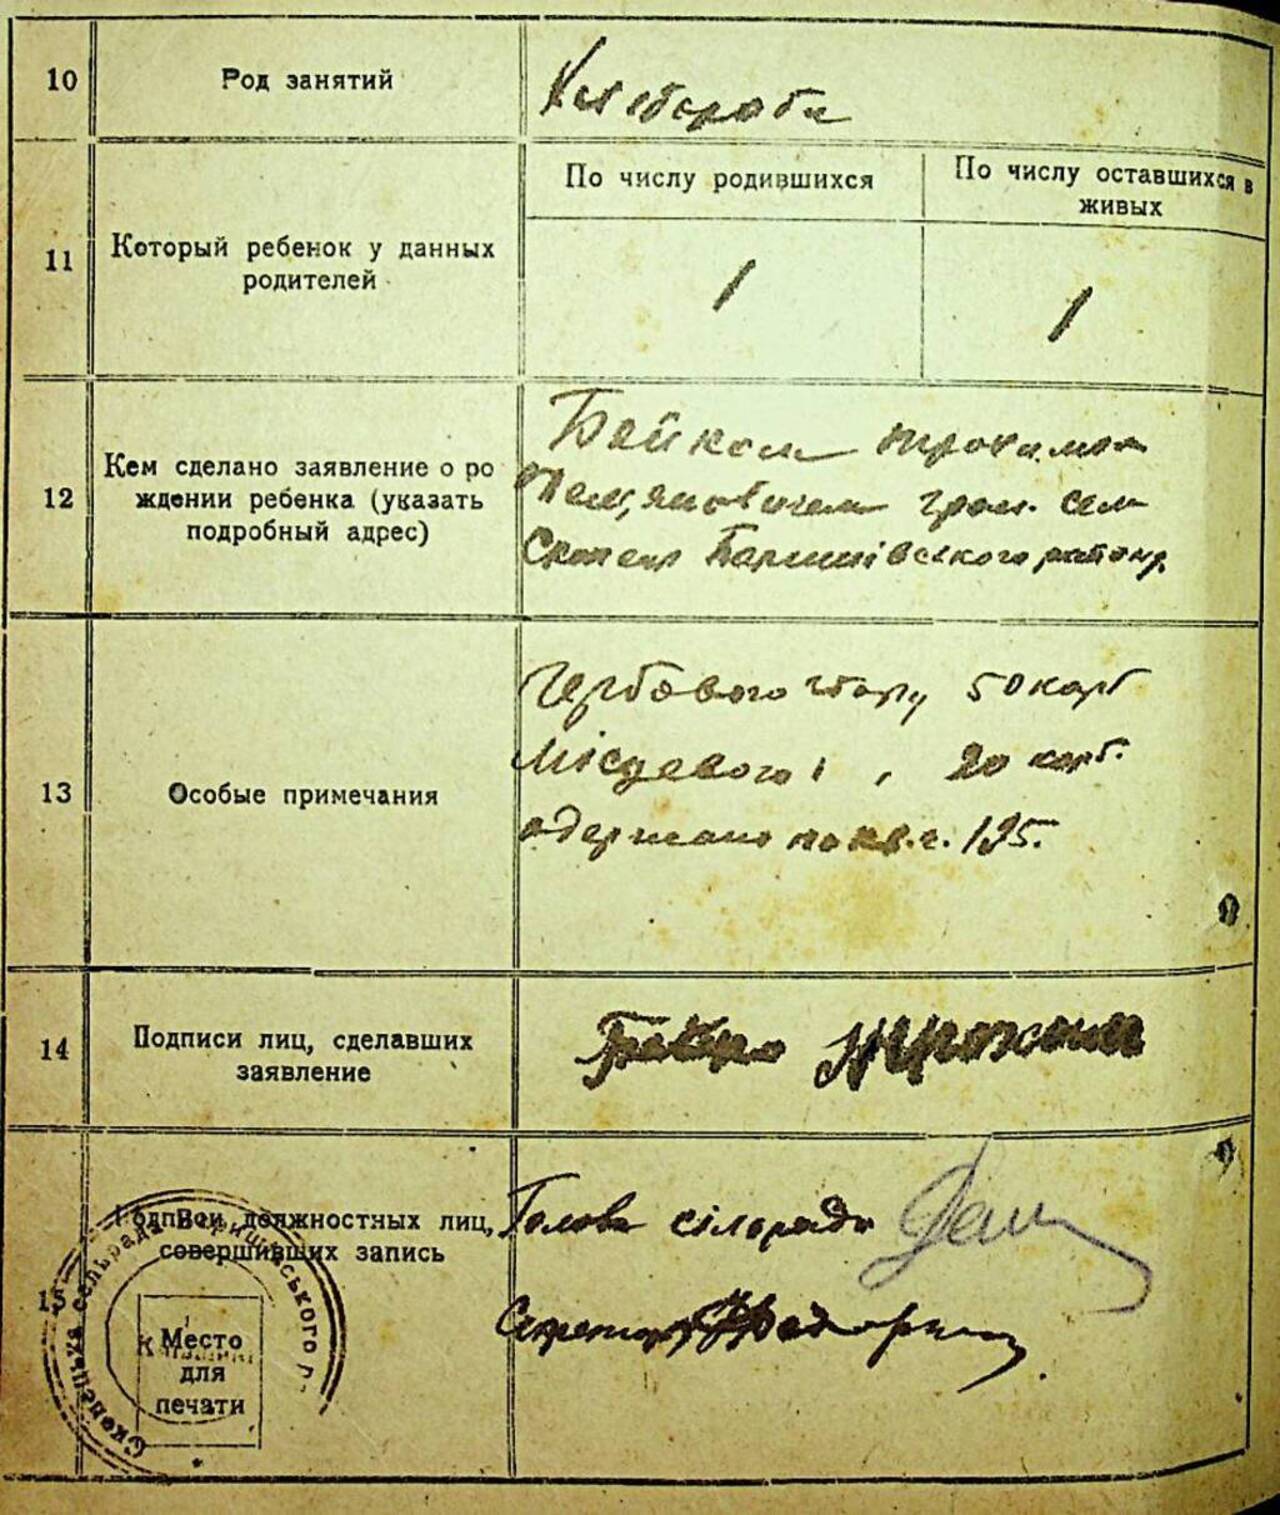 10
Род занятий
Хлібороби
11
Который ребенок у данных
родителей
По числу родившихся
По числу оставшихся в
живых
1
1
12
Кем сделано заявление о ро
ждении ребенка (указать
подробный адрес)
Бойком
гром. села
Скопець Баришівського району
13
Особые примечания
Гербового збору 50 карб
Місцевого 20 карб.
одержано по кв. г. 195.
14
Подписи лиц, сделавших
заявление
15
Подписи должностных лиц,
совершивших запись
Место
для
печати
Скопецька сельрада Баришівського р-
Голова сілоради
Секретарь